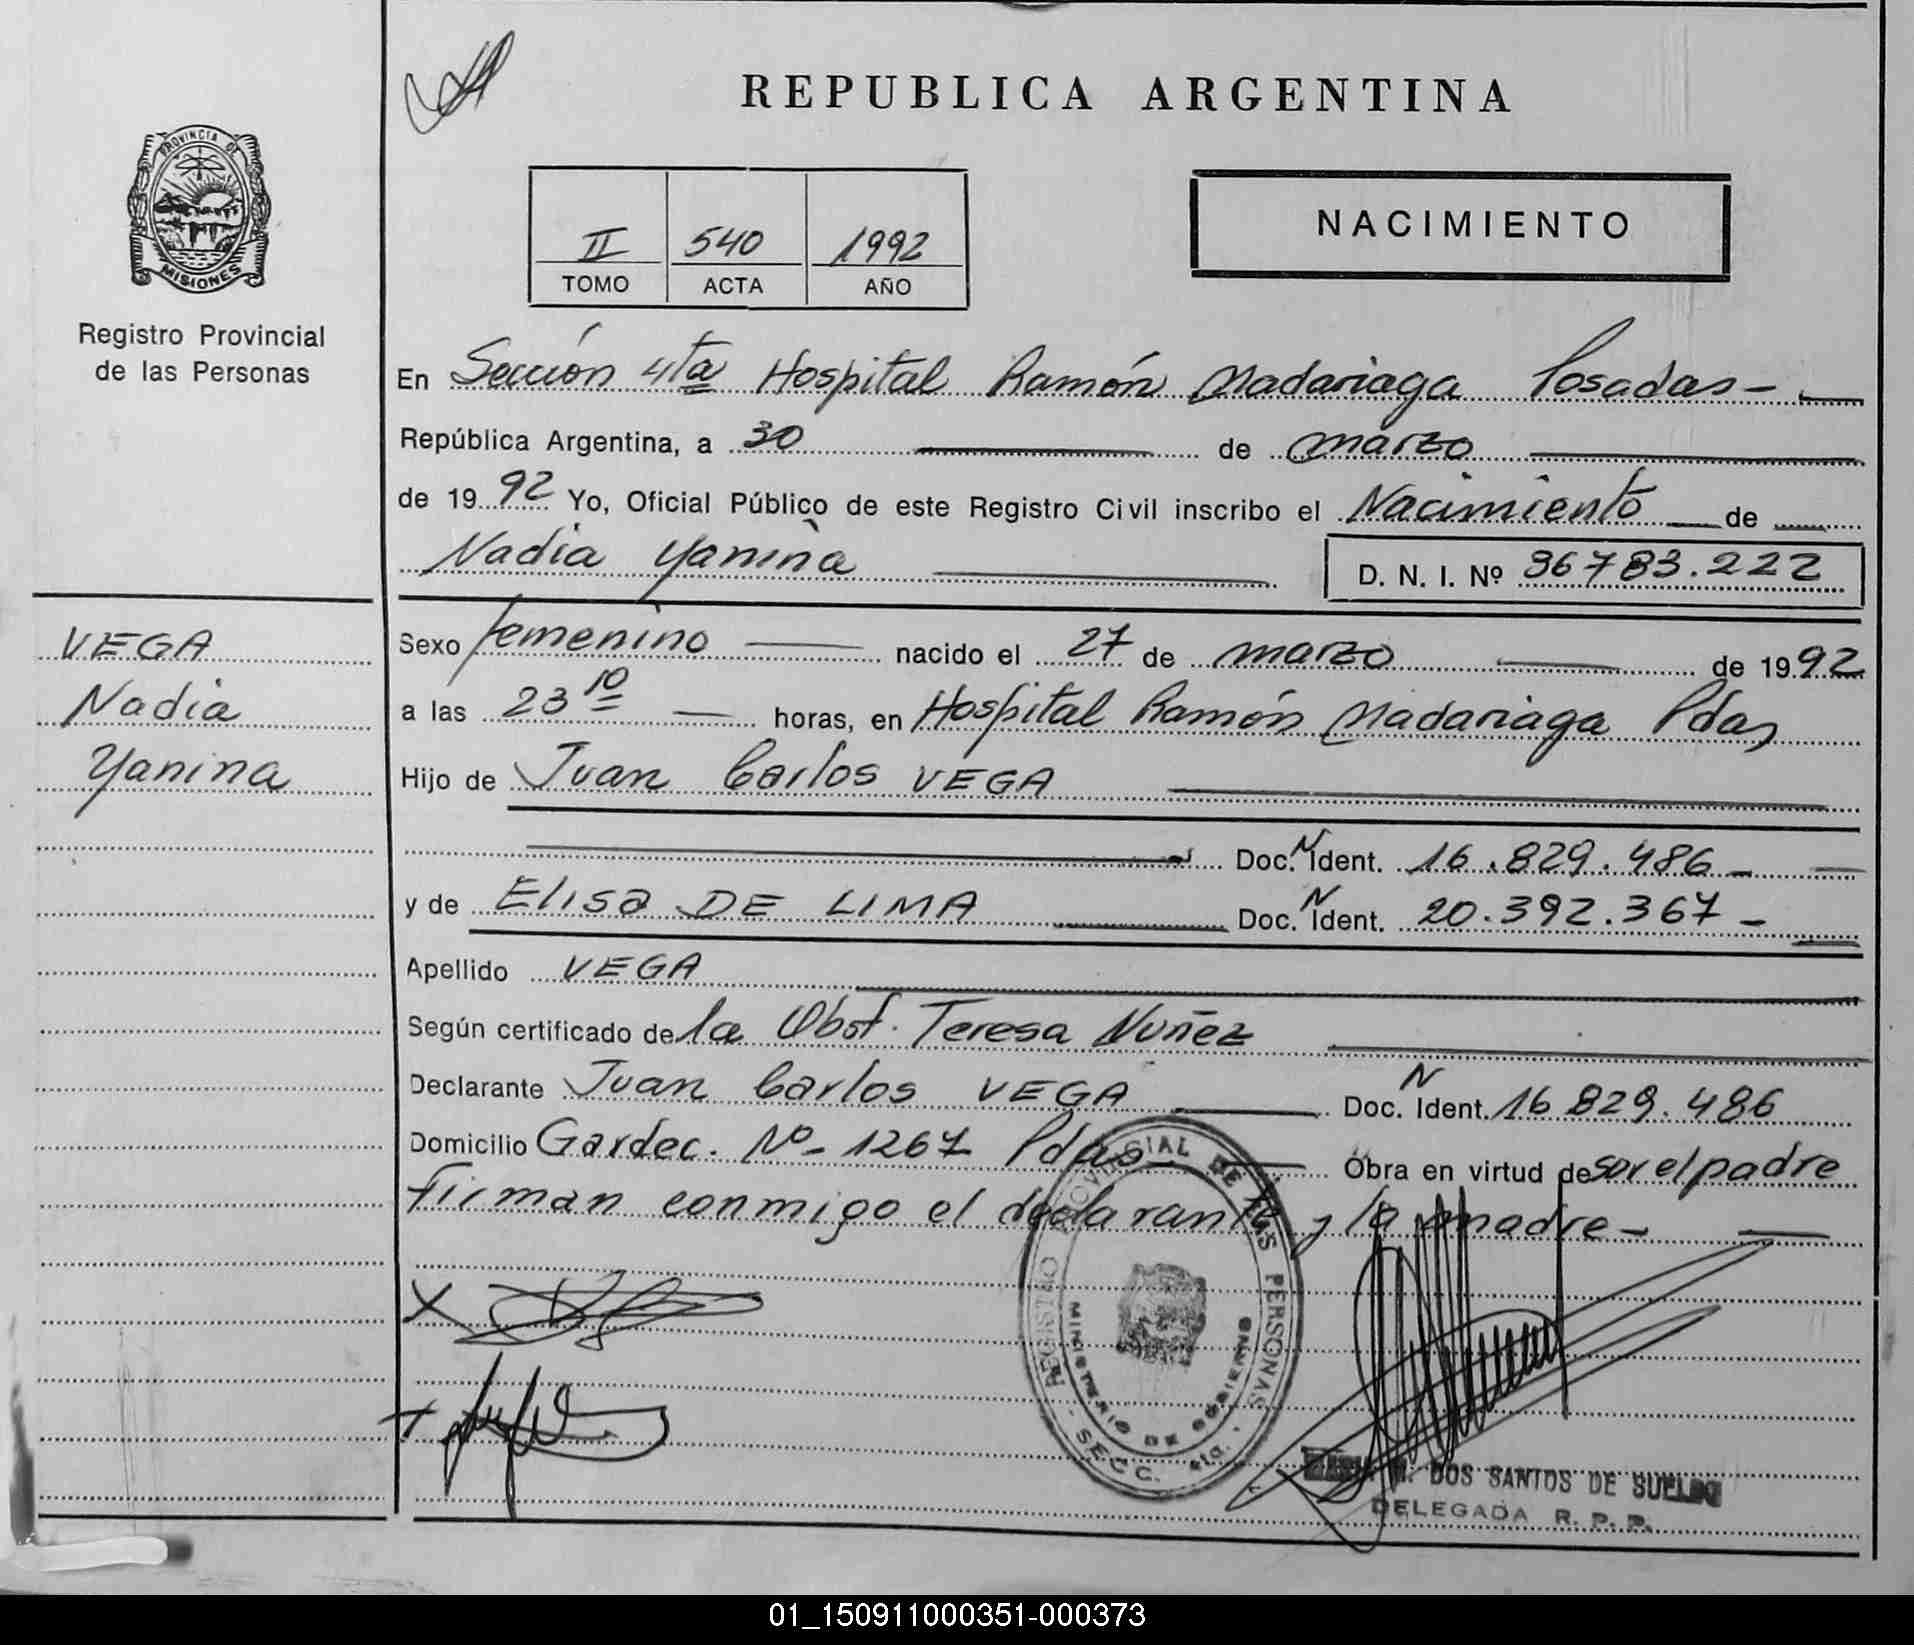 REPUBLICA ARGENTINA
PROVINCIA DE
MISIONES
Registro Provincial
de las Personas
II 540 1992
TOMO ACTA AÑO
NACIMIENTO
En Sección 4ta Hospital Ramón Madariaga Posadas-
República Argentina, a 30 de marzo
de 1992 Yo, Oficial Público de este Registro Civil inscribo el Nacimiento de
Nadia Yanina D. N. I. Nº 36783.222
VEGA
Nadia
Yanina
Sexo femenino nacido el 27 de marzo de 1992
a las 23 10 horas, en Hospital Ramón Madariaga Pdas
Hijo de Juan Carlos VEGA
Doc. N Ident. 16.829.486-
y de Elisa DE LIMA Doc. N Ident. 20.392.367-
Apellido VEGA
Según certificado de la Obst. Teresa Nuñez
Declarante Juan Carlos VEGA Doc. N Ident. 16 829.486
Domicilio Gardec. Nº- 1267 Pdas- Obra en virtud de ser el padre
Firman conmigo el declarante y la madre-
REGISTRO PROVINCIAL DE LAS PERSONAS
MINISTERIO DE GOBIERNO
- SECC. 4ta. -
M. DOS SANTOS DE SUELDO
DELEGADA R. P. P.
01_150911000351-000373